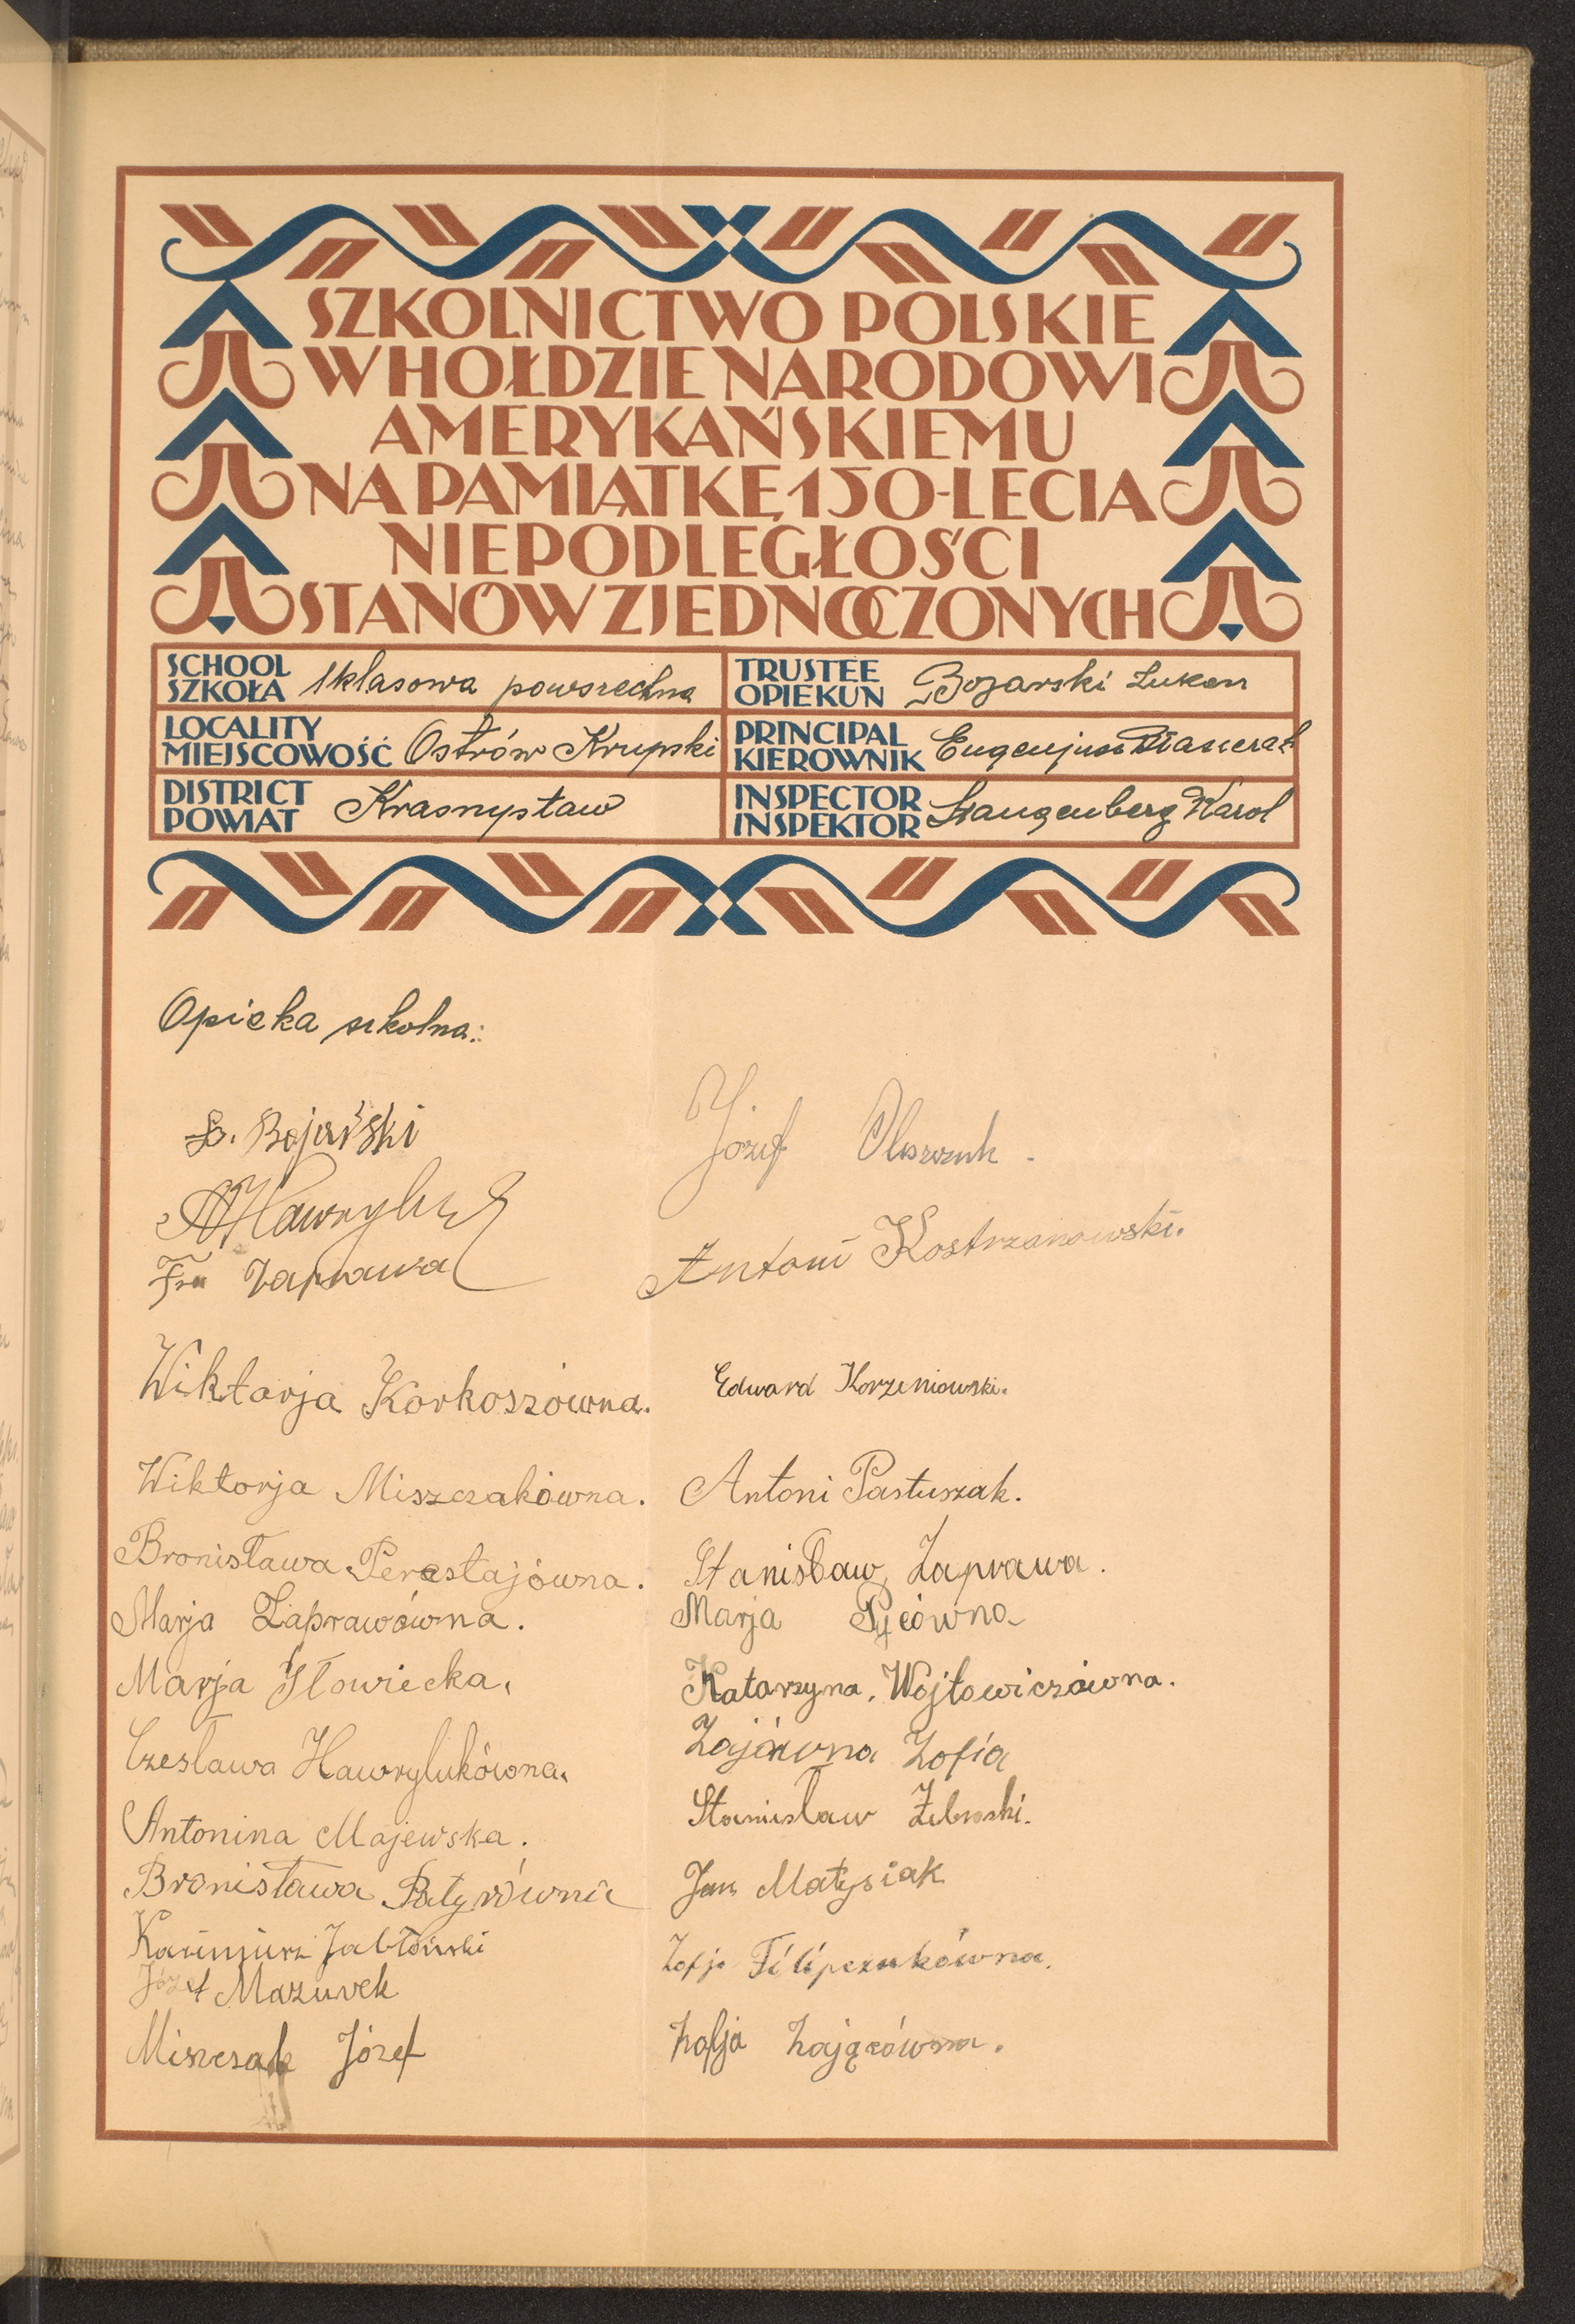 SZKOLNICTWO POLSKIE
W HOŁDZIE NARODOWI
AMERYKAŃSKIEMU
NA PAMIĄTKĘ 150-LECIA
NIEPODLEGŁOŚCI
STANÓW ZJEDNOCZONYCH
SCHOOL
SZKOŁA 1klasowa powszechna
TRUSTEE
OPIEKUN Bojarski Łukasz
LOCALITY
MIEJSCOWOŚĆ Ostrów Krupski
PRINCIPAL
KIEROWNIK Eugenjusz
DISTRICT
POWIAT Krasnystaw
INSPECTOR
INSPEKTOR Langenberg Karol
Opieka szkolna:
Ł. Bojarski
AHawryluk
Fra Zaprawa
Wiktorja Korkoszówna.
Wiktorja Miszczakówna.
Bronisława Perestajówna.
Marja Zaprawówna.
Marja Iłowiecka.
Czesława Hawrylukówna.
Antonina Majewska.
Bronisława Patyrówna
Kazimierz Jabłoński
Józef Mazurek
Miszczak Józef
Józef Oleszczuk.
Antoni Kostrzanowski.
Edward Korzeniowski.
Antoni Pastuszak.
Stanisław Zaprawa.
Marja
Katarzyna. Wójtowiczówna.
Zającówna Zofia
Stanisław Żebroski.
Jan Matysiak
Zofja Filipczukówna.
Zofja Zającówna.